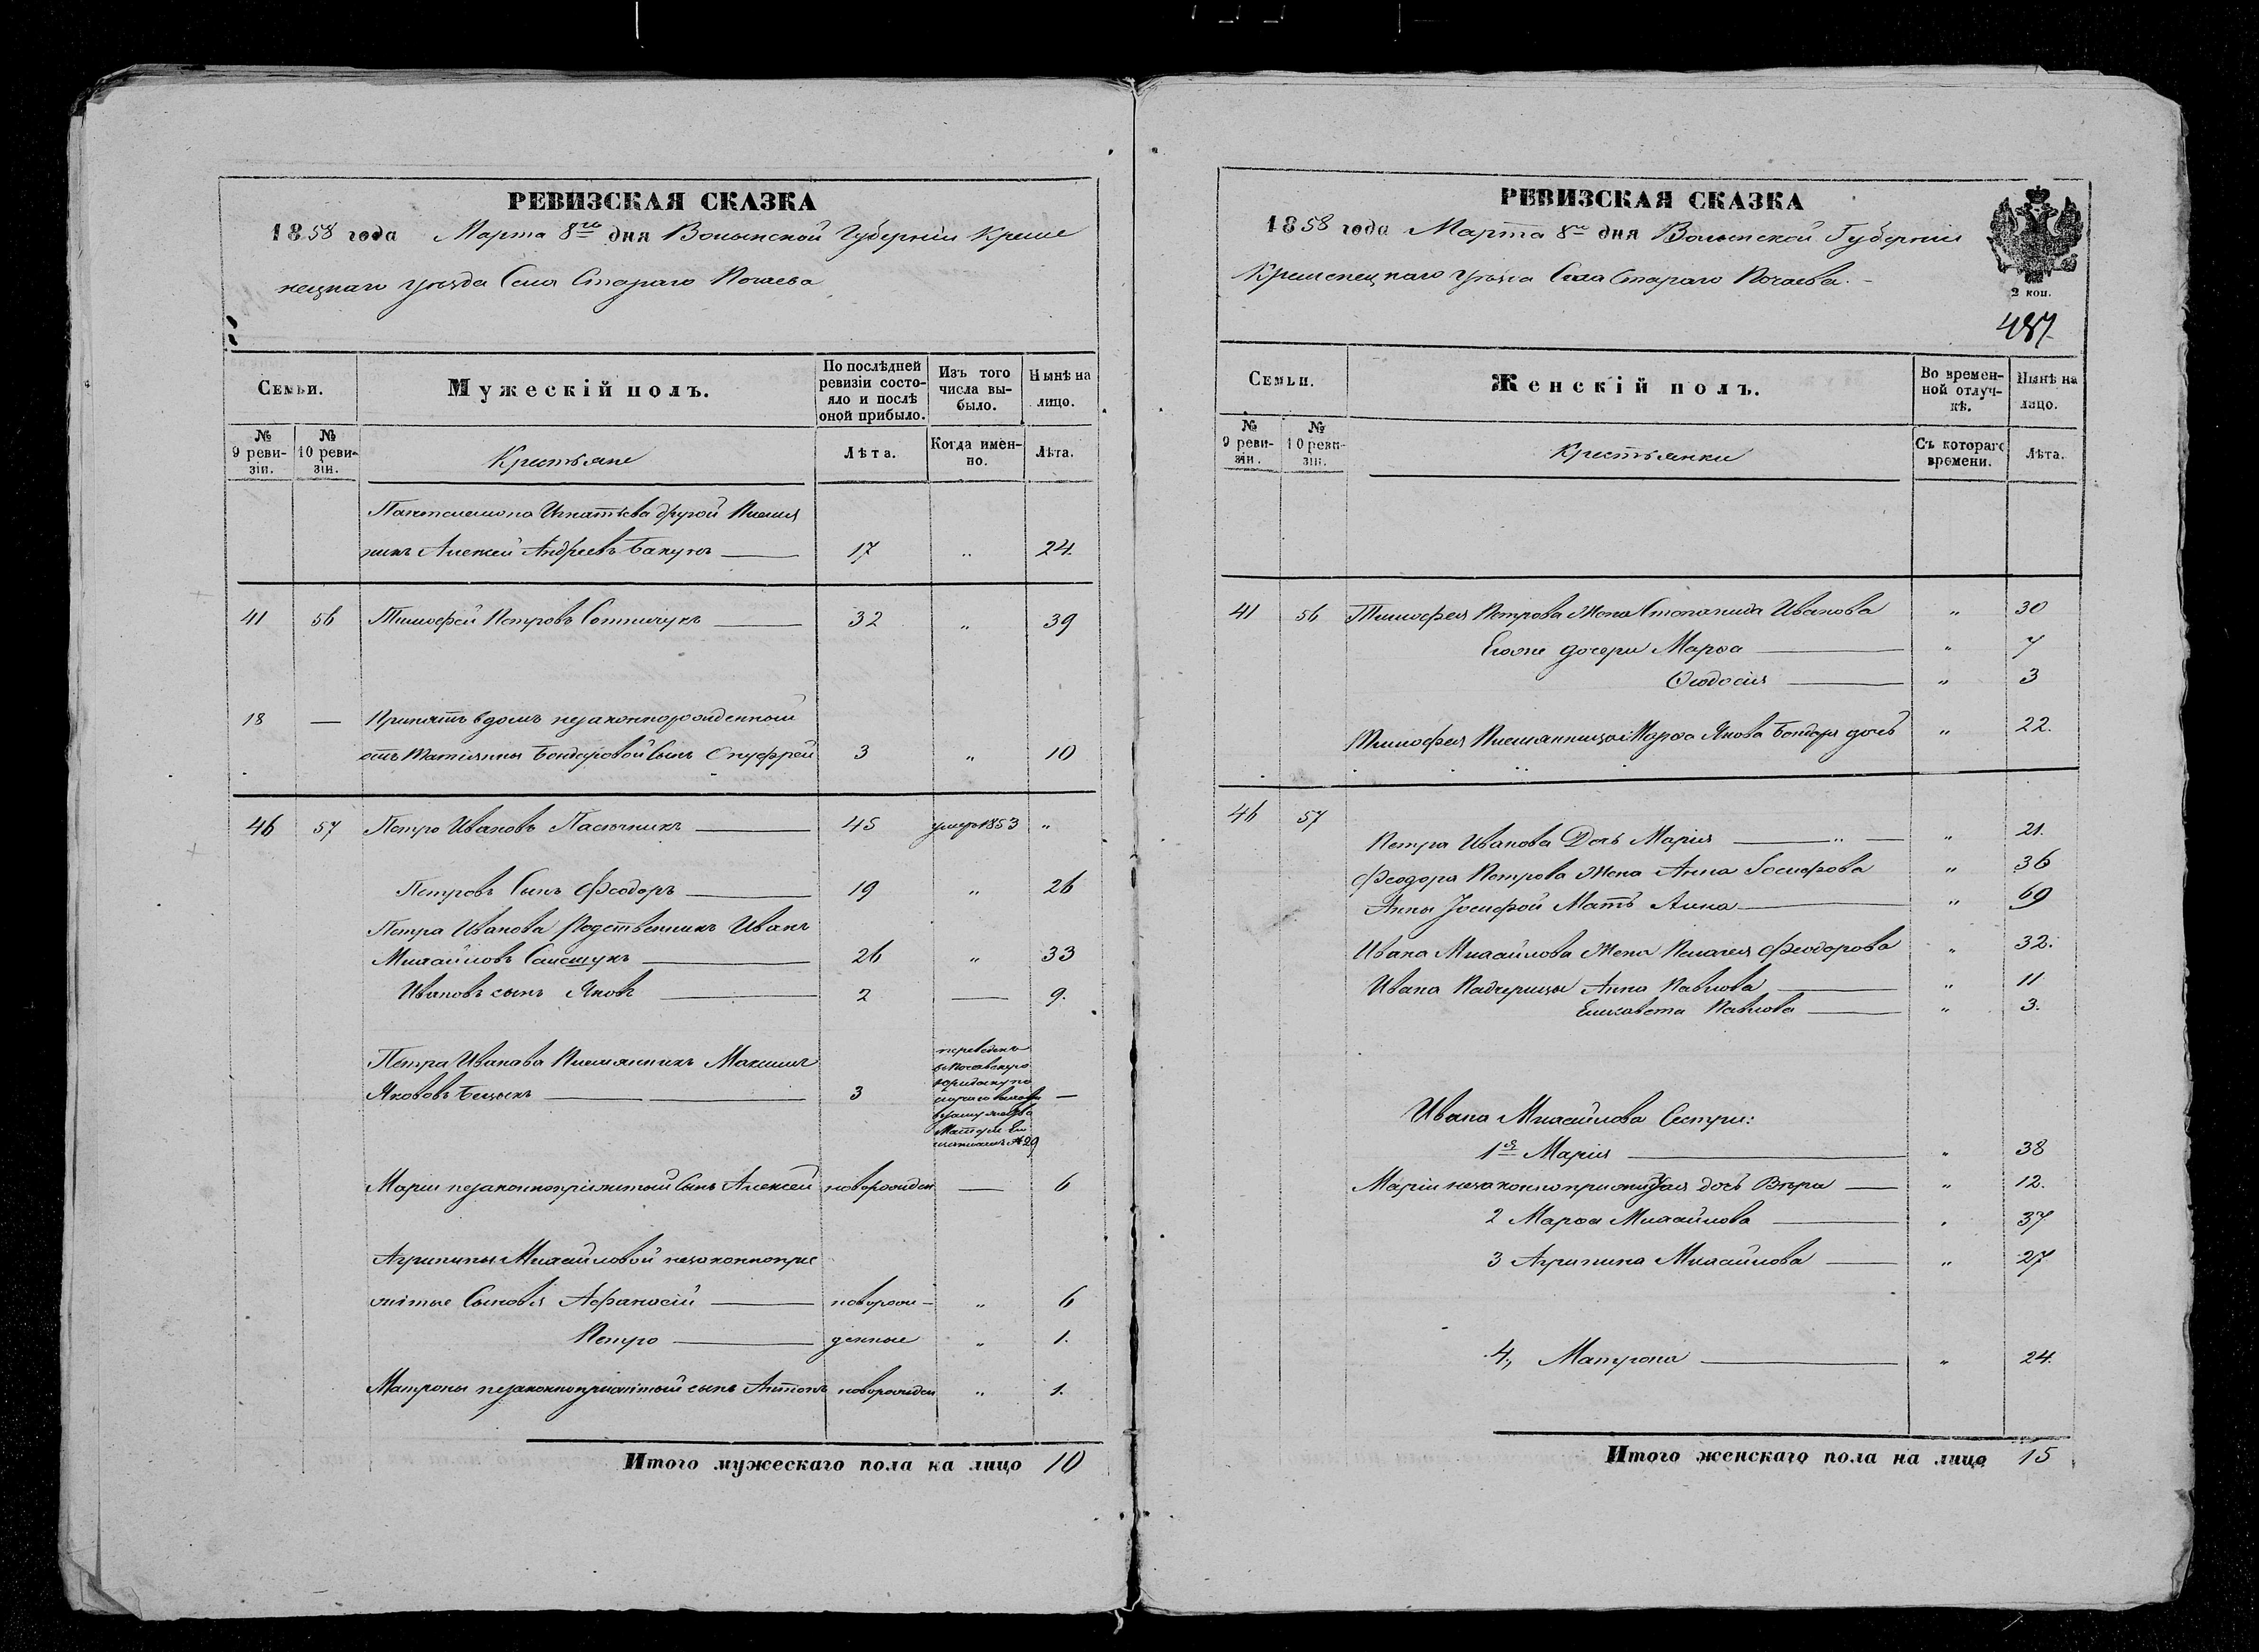 РЕВИЗСКАЯ СКАЗКА
1858 года Марта 8го дня Волынской Губерніи Креме
нецкаго уѣзда Села Стараго Почаева
Семьи.
Мужескій полъ.
По послѣдней ревизіи состояло и послѣ оной прибыло.
Изъ того числа выбыло.
Нынѣ на лицо.
№ 9 ревизіи.
№ 10 ревизіи.
Крестьяне
Лѣта.
Когда именно.
Лѣта.
Пантелемона Игнатьева другой Племян
никъ Алексей Андреевъ 17 „ 24.
41 56 Тимофей Петровъ 32 „ 39
18 — Принятъ в домъ незаконнорожденный
отъ Татіянны Бондаровой Сынъ Онуфрей 3 „ 10
46 57 Петро Ивановъ Пасѣчникъ 45 умеръ 1853 „
Петровъ Сынъ Феодоръ 19 „ 26
Петра Иванова Родственникъ Иванъ
Михайловъ 26 „ 33
Ивановъ сынъ Яковъ 2 — 9.
Петра Иванова Племянникъ Максимъ
Якововъ 3 —
переведенъ
в Почаевскую
Матери
№ 29
Маріи незаконноприжитый Сынъ Алексей новорожден — 6
Агрипины Михайловой незаконнопри
житые Сыновья Афанасій новорож- „ 6
Петро денные „ 1.
Матроны незаконноприжитый сынъ Антонъ новорожден „ 1.
Итого мужескаго пола на лицо 10
РЕВИЗСКАЯ СКАЗКА
1858 года Марта 8го дня Волынской Губерніи
Кременецкаго уѣзда Села Стараго Почаева.
2 коп.
487
Семьи.
Женскій полъ.
Во временной отлучкѣ.
Нынѣ на лицо.
№ 9 ревизіи.
№ 10 ревизіи.
Крестьянки
Съ котораго времени.
Лѣта.
41 56 Тимофея Петрова Жена Стопанида Иванова „ 30
Егоже дочери Марѳа „ 7
Ѳеодосія „ 3
Тимофея Племянница Марѳа Якова Бондаря дочь „ 22.
46 57
Петра Иванова Дочь Марія „ 21.
Феодора Петрова Жена Анна Іосифова „ 36
Анны Іосифой Мать Анна „ 69
Ивана Михайлова Жена Пелагея Феодорова „ 32.
Ивана Падчерицы Анна Павлова „ 11
Елисавета Павлова „ 3.
Ивана Михайлова Сестри:
1я Марія „ 38
Маріи незаконноприжитая дочь Вѣра „ 12.
2 Марѳа Михайлова „ 37
3 Агрипина Михайлова „ 27
4, Матрона „ 24.
Итого женскаго пола на лицо 15